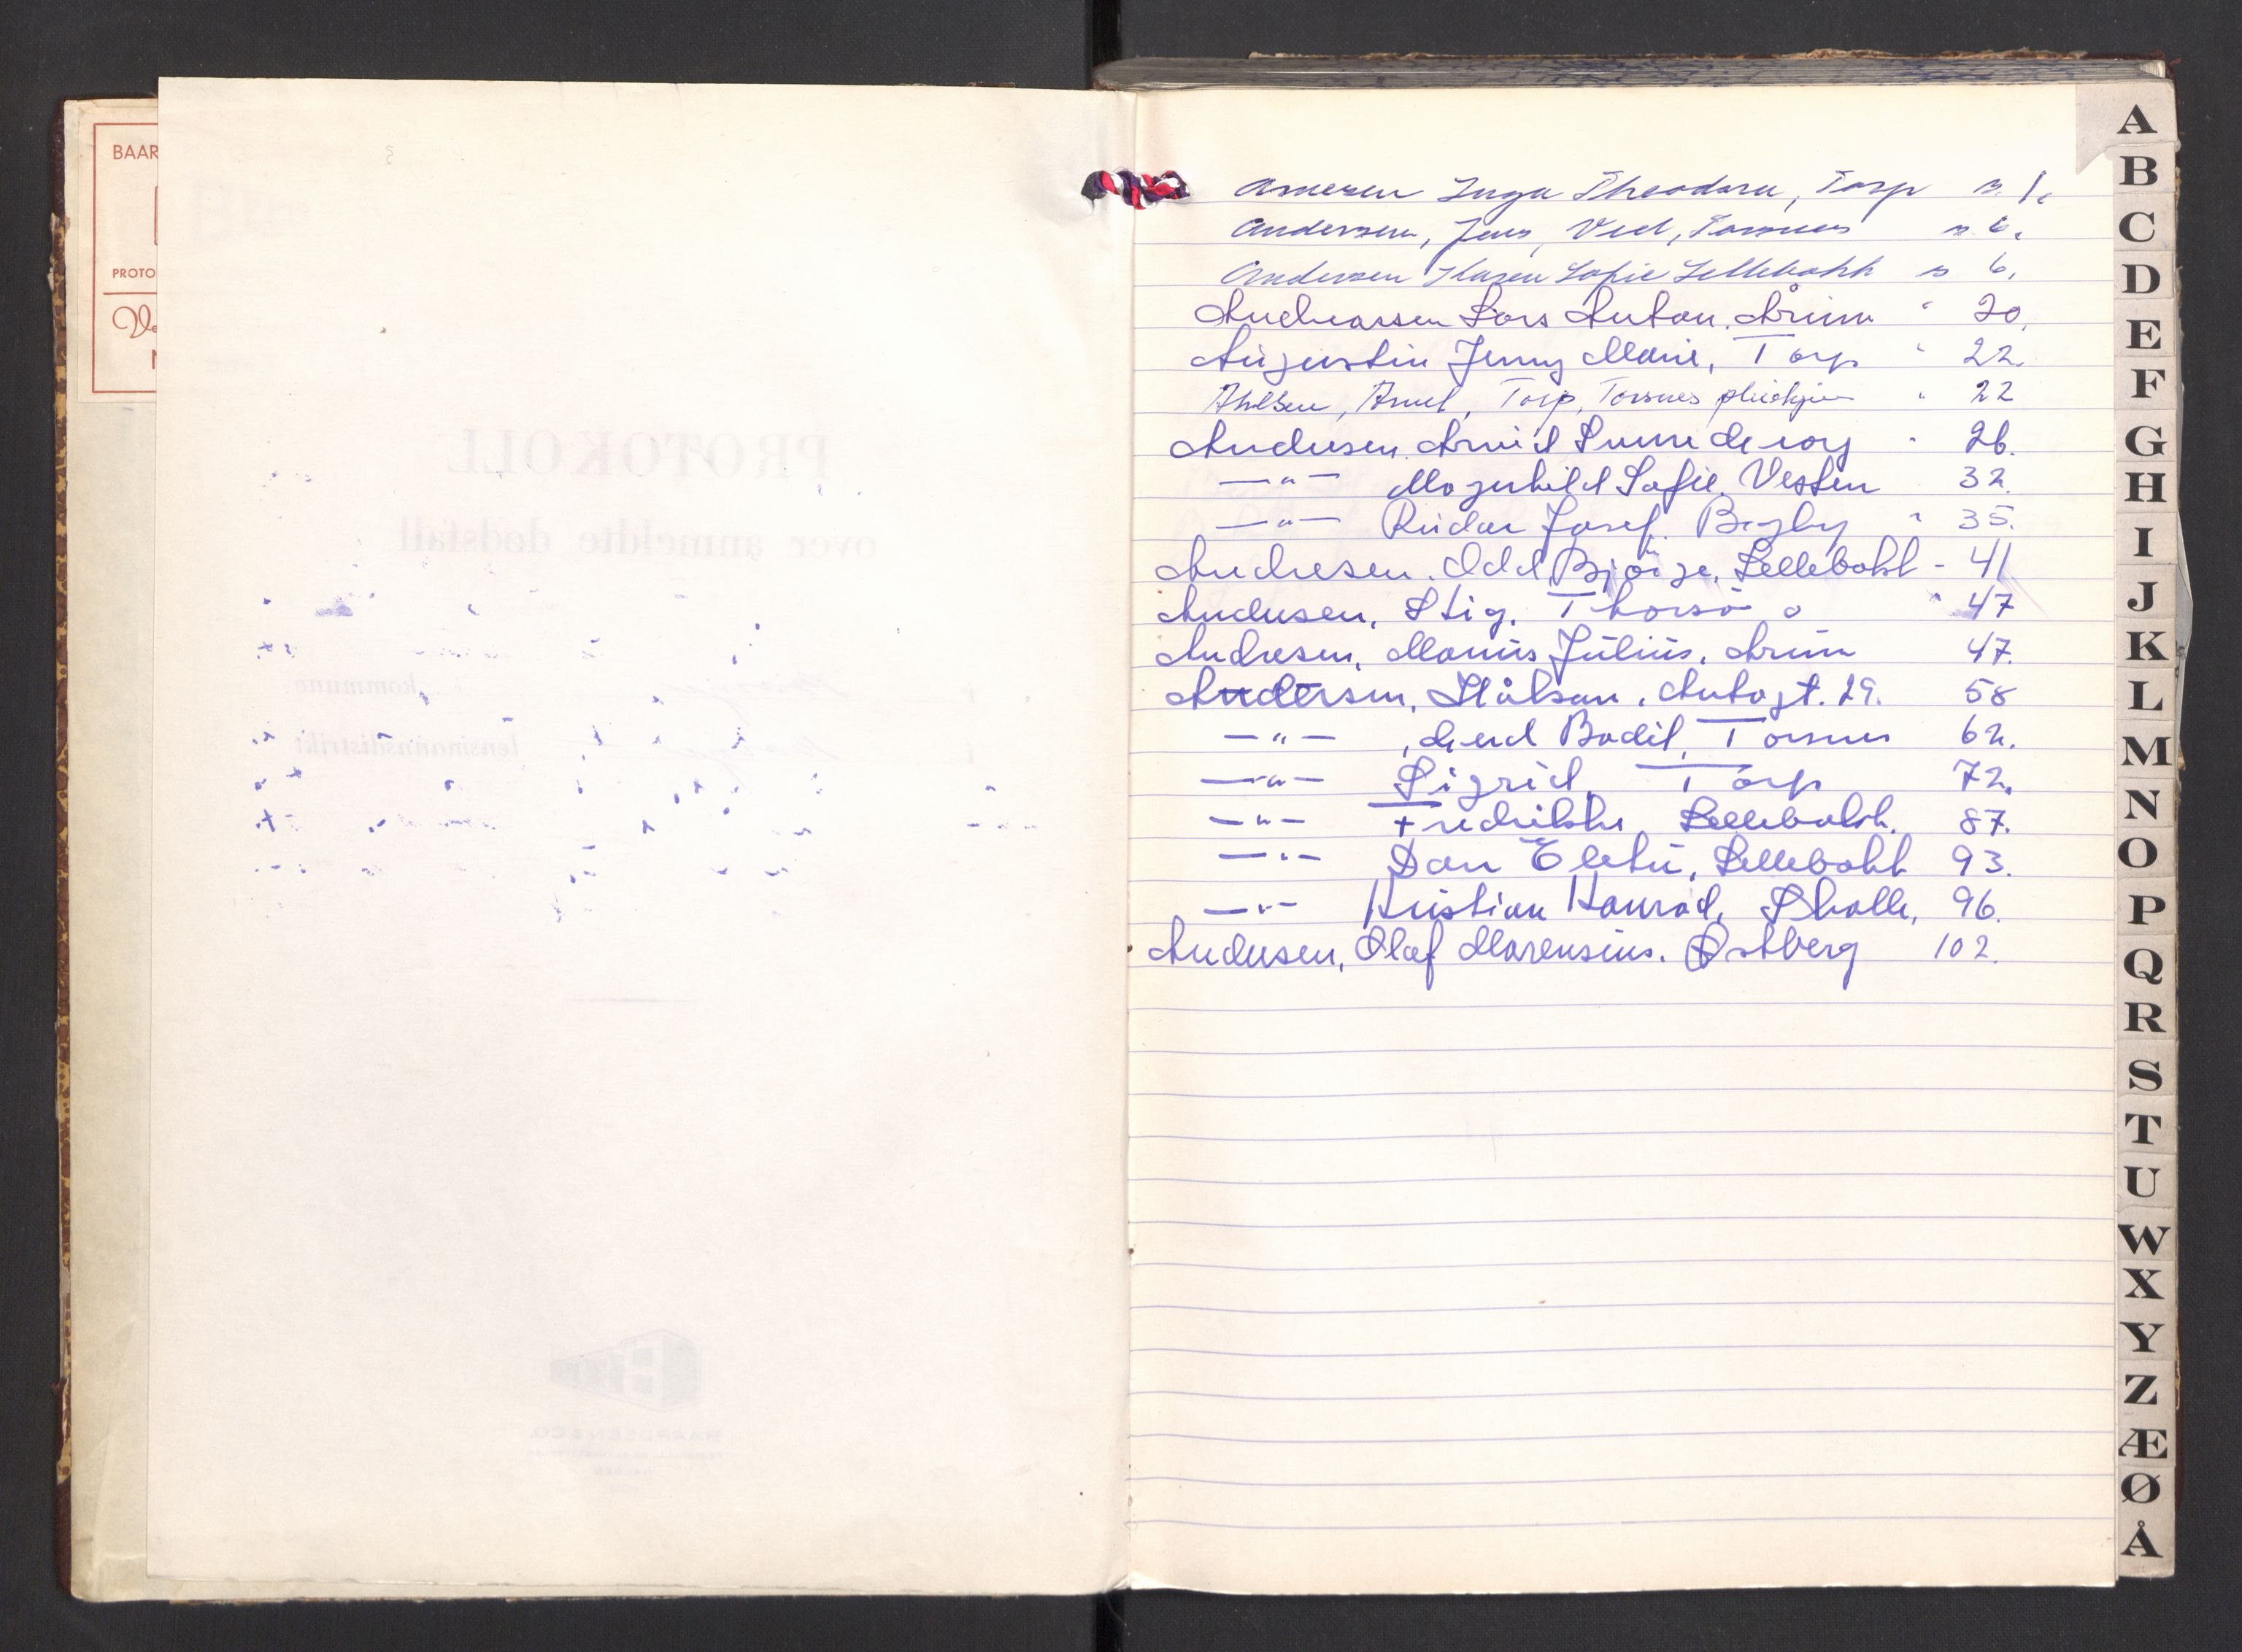 BAAR
PROTO
PROTOKOLL
over anmeldte dødsfall
kommune
lensmannsdistrikt
BAARDSEN & CO.
Inga Theodora, Torp s. 1.
Andersen, Jens, Ved, Torsnes s. 6.
Andersen Karen Sofie Lellebakk s 6.
Andreassen Lars Anton. Årum " 20.
Augustin Jenny Marie, Torp " 22.
Ahlsen, Arnel, Torp, Torsnes pleiehjem " 22
Andresen. Arvid " 26.
—"— Magnhild Sofie. Vesten 32.
—"— Reidar Josef. Begby " 35.
Andresen. Odd Bjørge, Lellebakk - 41
Andresen, Stig. Thorsø " 47
Andresen, Marius Julius. Årum 47.
Andersen, Håkan. Antagt. 29. 58
—"— , Gerd Bodil, Torsnes 62.
—"— Sigrid, Torp 72.
—"— Fredrikke Lellebakk. 87.
—"— Dan Lellebakk 93.
—"— Kristian Konrad, Skolle, 96.
Andresen, Olaf Marensius. Østberg 102.
A
B
C
D
E
F
G
H
I
J
K
L
M
N
O
P
Q
R
S
T
U
W
X
Y
Z
Æ
Ø
Å